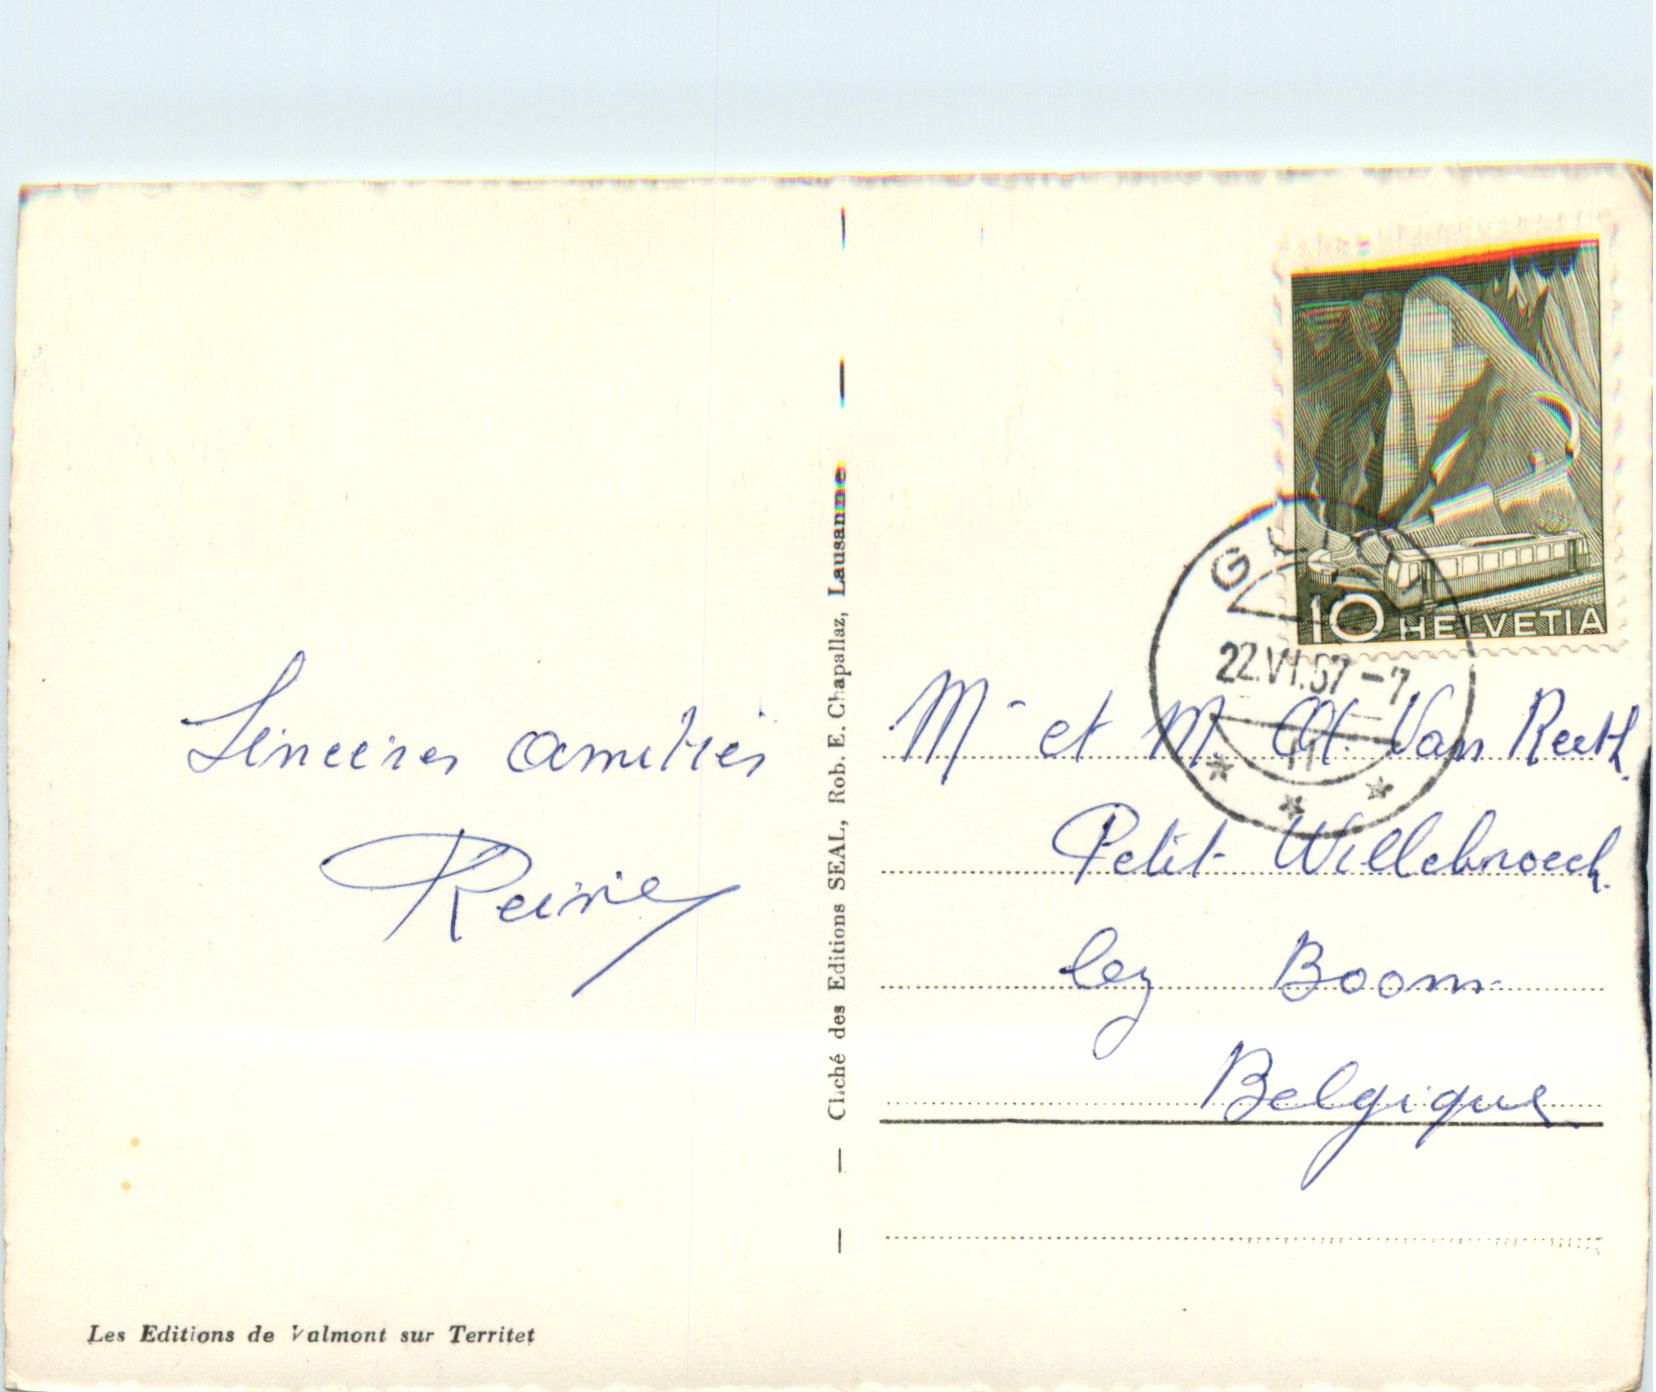 Sinceires amitiés
Reine
Les Editions de Valmont sur Territet
Cliché des Editions SEAL, Rob. E. Chapallaz, Lausanne
10 HELVETIA
22.VI.57-7
M et M Van Reeth
Petit-Willebroeck.
lez Boom
Belgique.